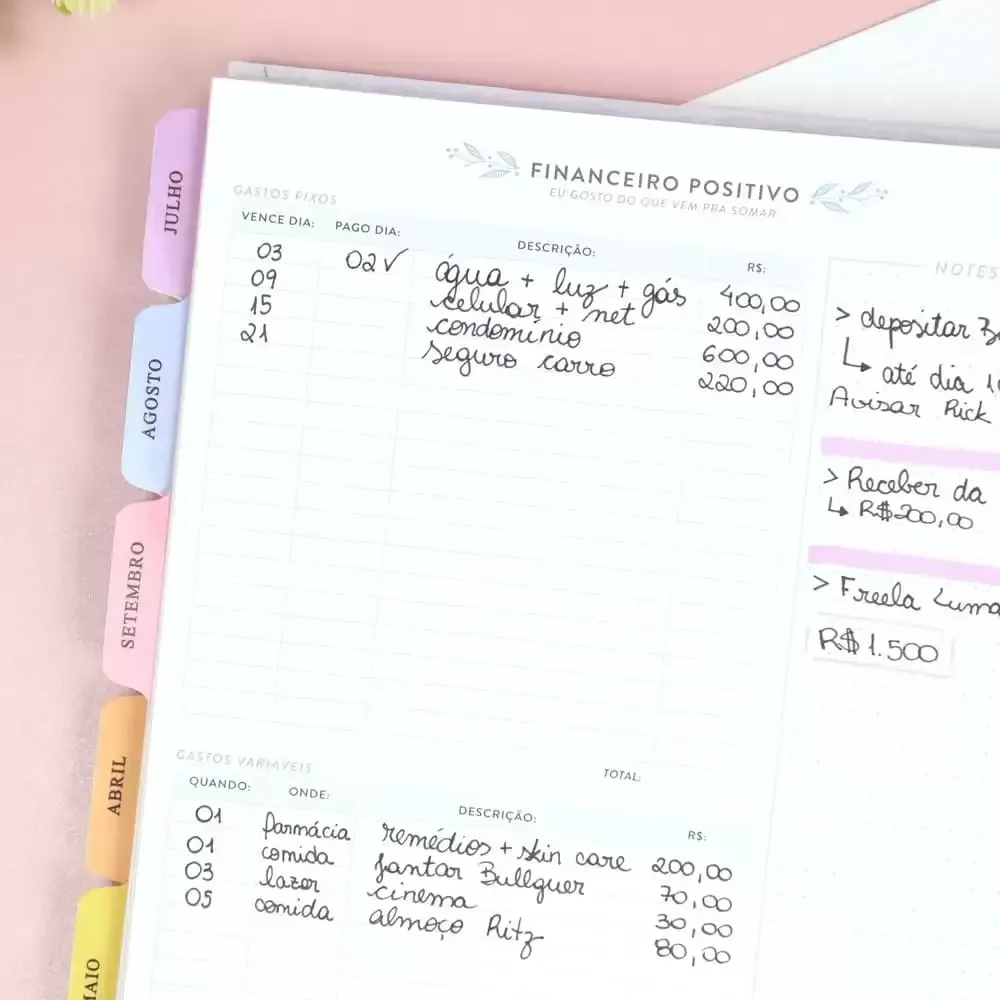 FINANCEIRO POSITIVO
EU GOSTO DO QUE VEM PRA SOMAR
GASTOS FIXOS
VENCE DIA: PAGO DIA: DESCRIÇÃO: R$:
03 02 ✓ água + luz + gás 400,00
09 celular + net 200,00
15 condomínio 600,00
21 seguro carro 220,00
TOTAL:
GASTOS VARIÁVEIS
QUANDO: ONDE: DESCRIÇÃO: R$:
01 farmácia remédios + skin care 200,00
01 comida jantar Bullguer 70,00
03 lazer cinema 30,00
05 comida almoço Ritz 80,00
NOTES
> depositar
↳ até dia
Avisar Rick
> Receber da
↳ R$200,00
> Freela Luma
R$1.500
JULHO
AGOSTO
SETEMBRO
ABRIL
MAIO